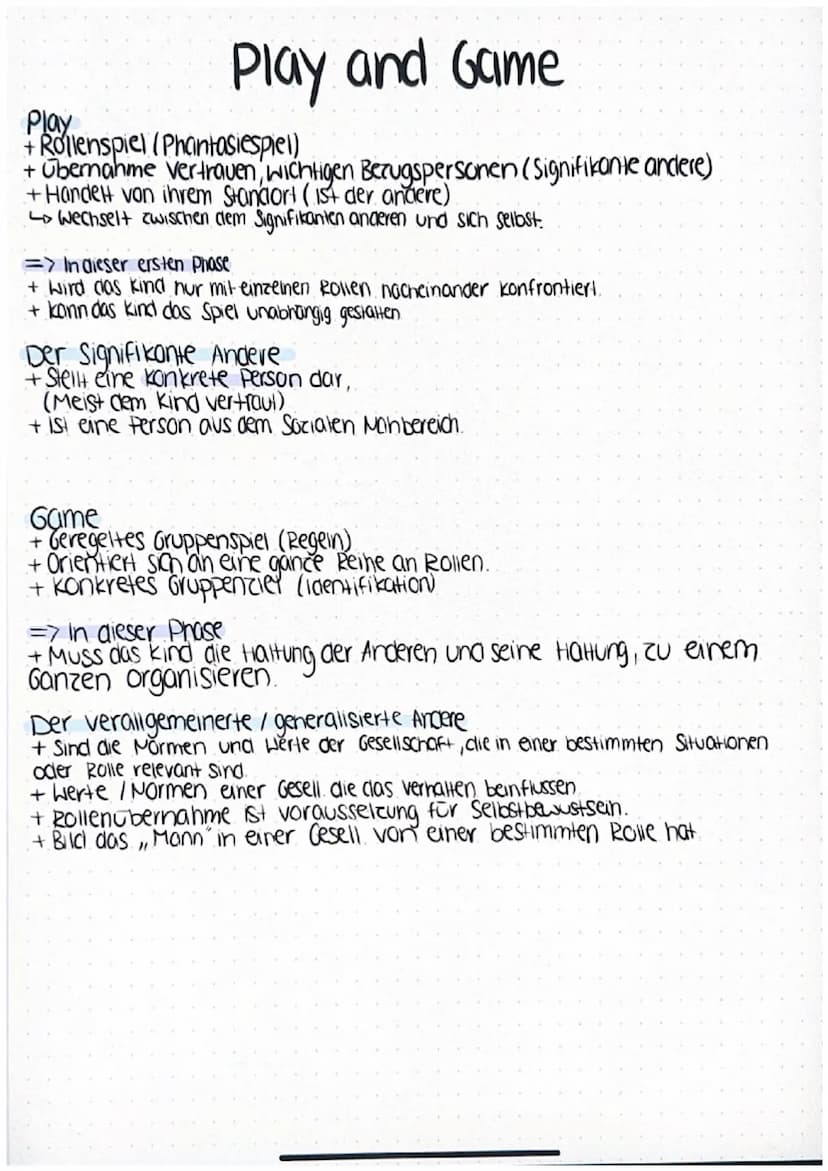 Play and Game
Play
+ Rollenspiel (Phantasiespiel)
+ Übernahme Vertrauen, wichtigen Bezugspersonen (Signifikante andere)
+ Handelt von ihrem Standort (ist der andere)
↳ Wechselt zwischen dem Signifikanten anderen und sich selbst.
=> In dieser ersten Phase
+ wird das Kind nur mit einzelnen Rollen nacheinander konfrontiert.
+ kann das Kind das Spiel unabhängig gestalten
Der Signifikante Andere
+ Stellt eine konkrete Person dar,
(Meist dem Kind vertraut)
+ Ist eine Person aus dem Sozialen Nahbereich.
Game
+ Geregeltes Gruppenspiel (Regeln)
+ Orientiert sich an eine gance Reihe an Rollen.
+ Konkretes Gruppenziel (Identifikation)
=> In dieser Phase
+ Muss das Kind die Haltung der Anderen und seine Haltung, zu einem
Ganzen organisieren.
Der verallgemeinerte / generalisierte Andere
+ Sind die Normen und Werte der Gesellschaft, die in einer bestimmten Situationen
oder Rolle relevant sind.
+ Werte / Normen einer Gesell. die das verhalten beinflussen
+ Rollenübernahme ist voraussetzung für Selbstbewustsein.
+ Bild das „Mann" in einer Gesell. von einer bestimmten Rolle hat